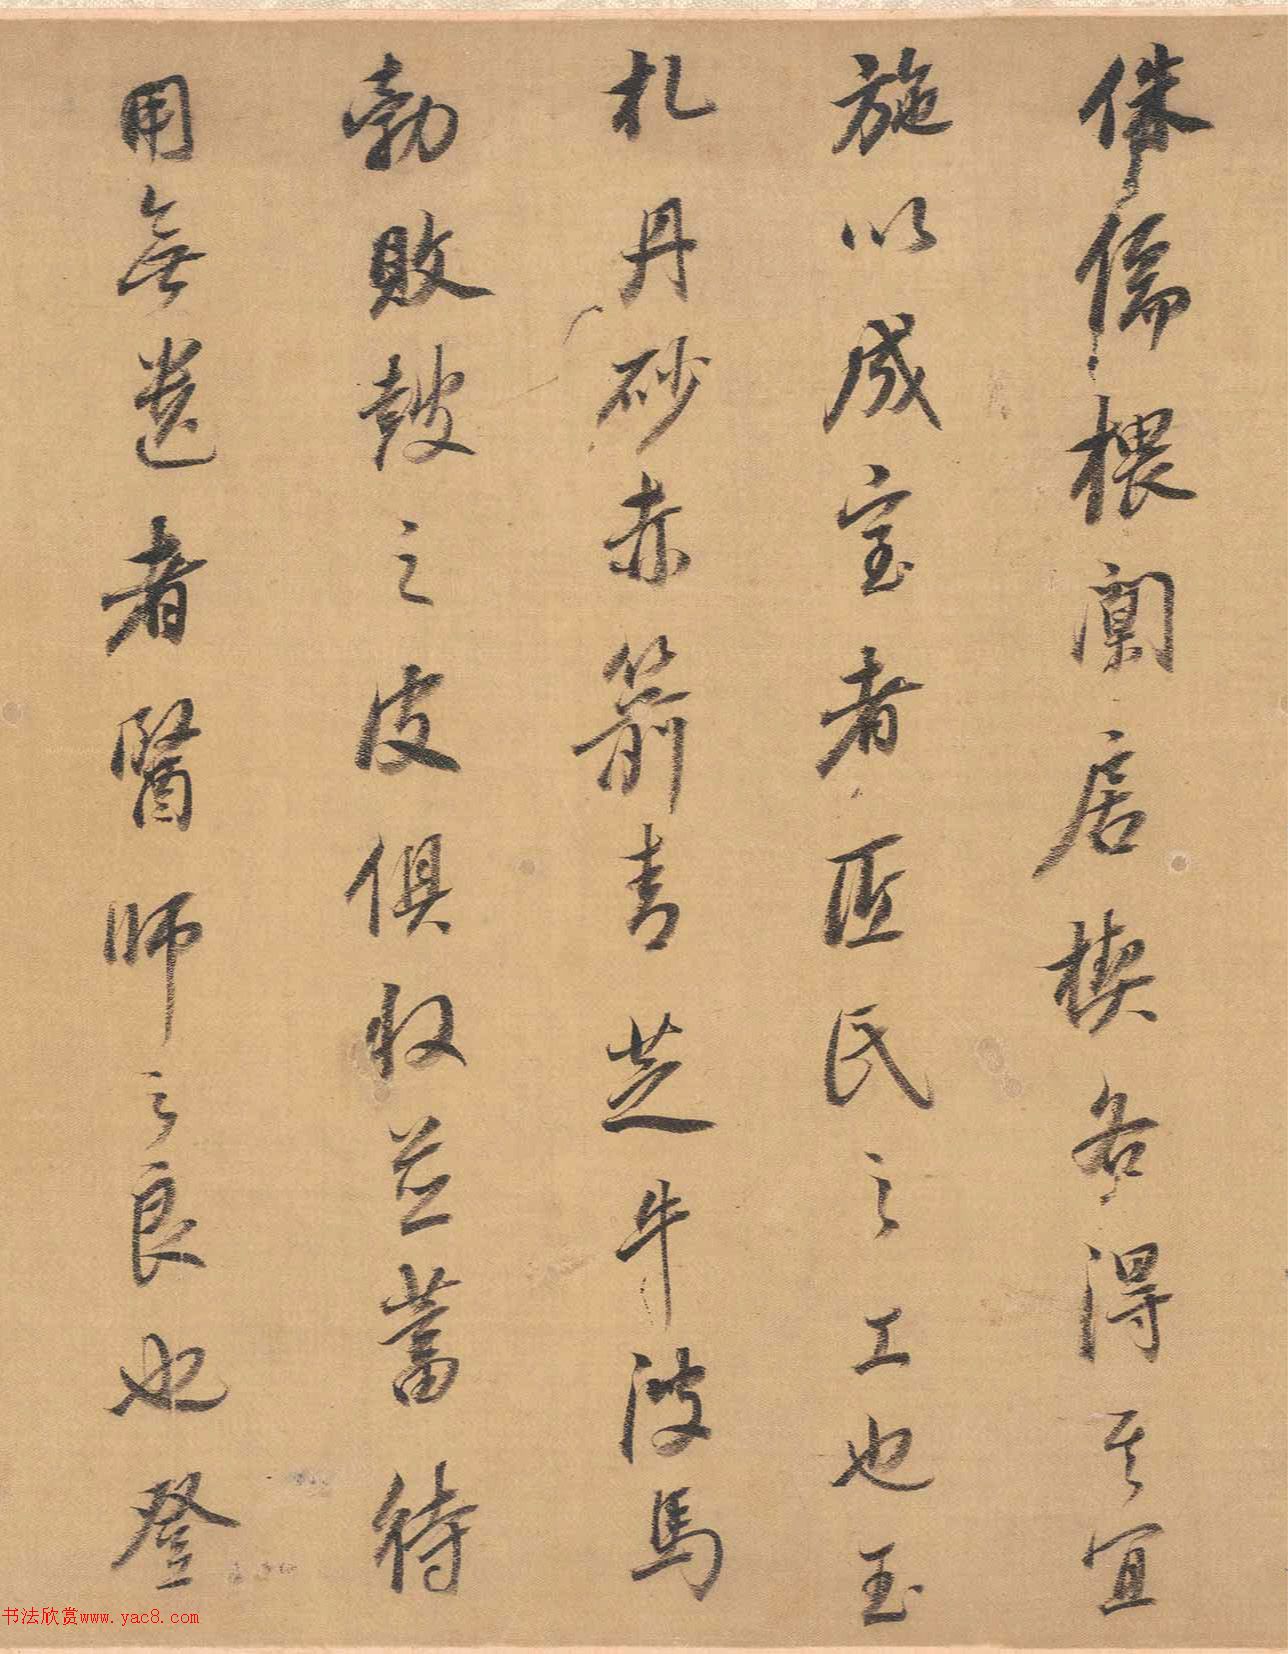 侏儒椳闑扂楔各得其宜
施以成室者匠氏之工也玉
札丹砂赤箭青芝牛溲馬
勃敗鼓之皮俱收並蓄待
用無遺者醫師之良也登
书法欣赏www.yac8.com